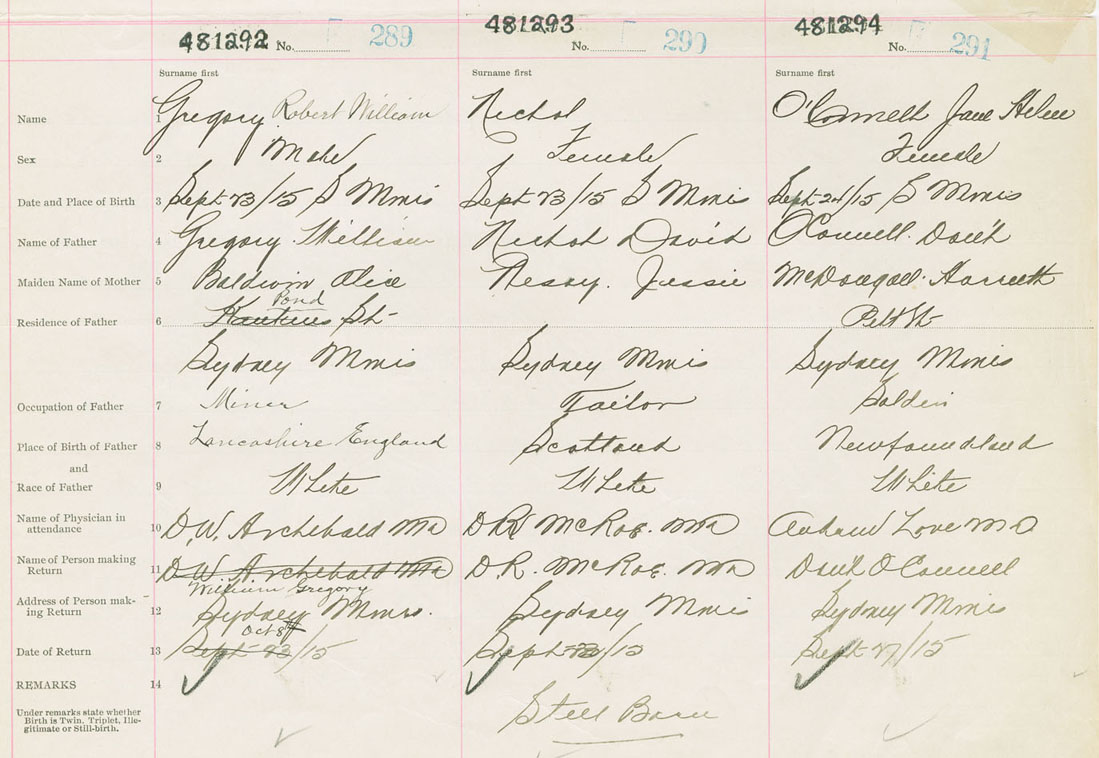 481292 481293 481294
No. 289 No. 290 No. 291
Surname first Surname first Surname first
Name 1 Gregory Robert William Nichol O'Connell Jane Helen
Sex 2 Male Female Female
Date and Place of Birth 3 Sept 23/15 S Mines Sept 23/15 S Mines Sept 24/15 S Mines
Name of Father 4 Gregory William Nichol David O'Connell Dan'l
Maiden Name of Mother 5 Baldwin Alice Jessie McDougall
Pond
Residence of Father 6 St Pitt St
Sydney Mines Sydney Mines Sydney Mines
Occupation of Father 7 Miner Tailor
Place of Birth of Father 8 Lancashire England Scotland Newfoundland
and
Race of Father 9 White White White
Name of Physician in
attendance 10 D.W. Archibald MD D.R. McRae. MD Love MD
Name of Person making
Return 11 D.W. Archibald MD D.R. McRae. MD Dan'l O'Connell
William Gregory
Address of Person mak-
ing Return 12 Sydney Mines. Sydney Mines Sydney Mines
Oct 8th
Date of Return 13 Sept 23/15 Sept /15 Sept 27/15
REMARKS 14
Under remarks state whether
Birth is Twin. Triplet, Ille-
gitimate or Still-birth.
Still Born